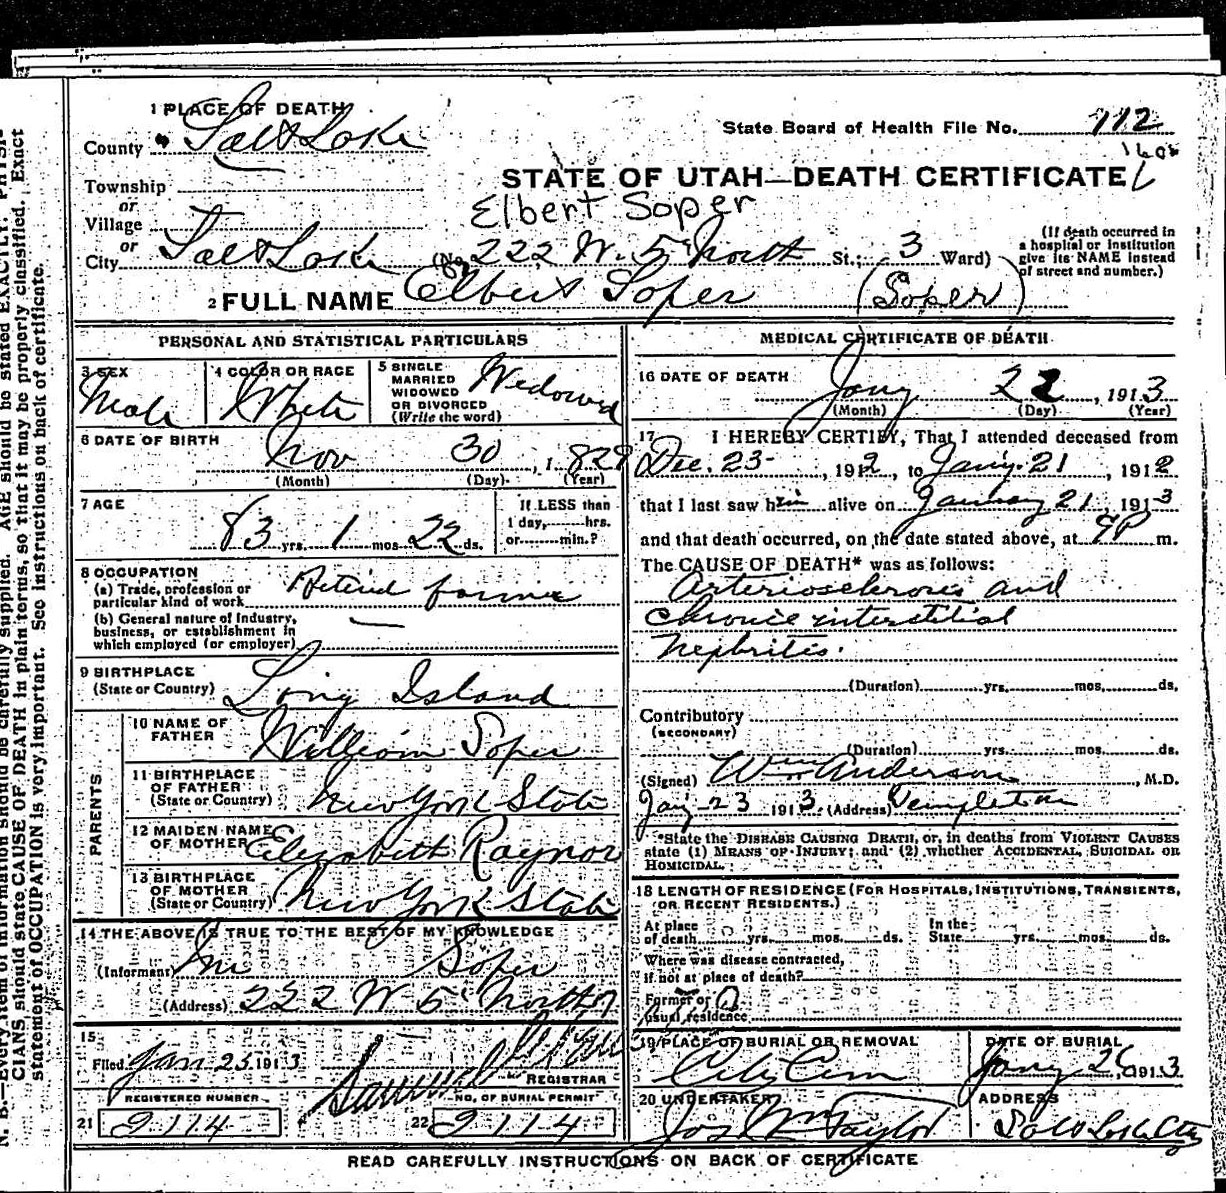 N. B.—Every item of information should be carefully supplied. AGE should be stated EXACTLY. PHYSI-
CIANS should state CAUSE OF DEATH in plain terms, so that it may be properly classified. Exact
statement of OCCUPATION is very important. See instructions on back of certificate.
1 PLACE OF DEATH
County Salt Lake
State Board of Health File No. 112
STATE OF UTAH—DEATH CERTIFICATE
Township
or
Village
or
City Salt Lake (No. 222 W. 5 North St.; 3 Ward)
Elbert Soper
(If death occurred in
a hospital or institution
give its NAME instead
of street and number.)
2 FULL NAME Elbert Soper (Soper)
PERSONAL AND STATISTICAL PARTICULARS
3 SEX
Male
4 COLOR OR RACE
White
5 SINGLE
MARRIED
WIDOWED
OR DIVORCED
(Write the word)
Widowed
6 DATE OF BIRTH
Nov 30, 1829
(Month) (Day) (Year)
7 AGE
83 yrs. 1 mos. 22 ds.
If LESS than
1 day, hrs.
or min.?
8 OCCUPATION
(a) Trade, profession or
particular kind of work Retired farmer
(b) General nature of Industry,
business, or establishment in
which employed (or employer) —
9 BIRTHPLACE
(State or Country) Long Island
PARENTS
10 NAME OF
FATHER William Soper
11 BIRTHPLACE
OF FATHER
(State or Country) New York State
12 MAIDEN NAME
OF MOTHER Elizabeth Raynor
13 BIRTHPLACE
OF MOTHER
(State or Country) New York State
14 THE ABOVE IS TRUE TO THE BEST OF MY KNOWLEDGE
(Informant) Soper
(Address) 222 W 5 North
15
Filed Jan 25 1913 Samuel
REGISTRAR
REGISTERED NUMBER
21 2114
NO. OF BURIAL PERMIT
22 2114
MEDICAL CERTIFICATE OF DEATH
16 DATE OF DEATH
Jany 22, 1913
(Month) (Day) (Year)
17 I HEREBY CERTIFY, That I attended deceased from
Dec. 23, 1912, to Jany. 21, 1912
that I last saw him alive on January 21, 1913
and that death occurred, on the date stated above, at 9P m.
The CAUSE OF DEATH* was as follows:
Arteriosclerosis and
Chronic interstitial
Nephritis.
(Duration) yrs. mos. ds.
Contributory
(SECONDARY)
(Duration) yrs. mos. ds.
(Signed) Wm Anderson, M.D.
Jany 23 1913. (Address) Templeton
*State the DISEASE CAUSING DEATH, or, in deaths from VIOLENT CAUSES
state (1) MEANS OF INJURY; and (2) whether ACCIDENTAL, SUICIDAL OR
HOMICIDAL.
18 LENGTH OF RESIDENCE (FOR HOSPITALS, INSTITUTIONS, TRANSIENTS,
OR RECENT RESIDENTS.)
At place
of death yrs. mos. ds.
In the
State yrs. mos. ds.
Where was disease contracted,
if not at place of death?
Former or
usual residence
19 PLACE OF BURIAL OR REMOVAL
City Cem
DATE OF BURIAL
Jany 26, 1913
20 UNDERTAKER
Jos Wm Taylor
ADDRESS
Salt Lake City
READ CAREFULLY INSTRUCTIONS ON BACK OF CERTIFICATE